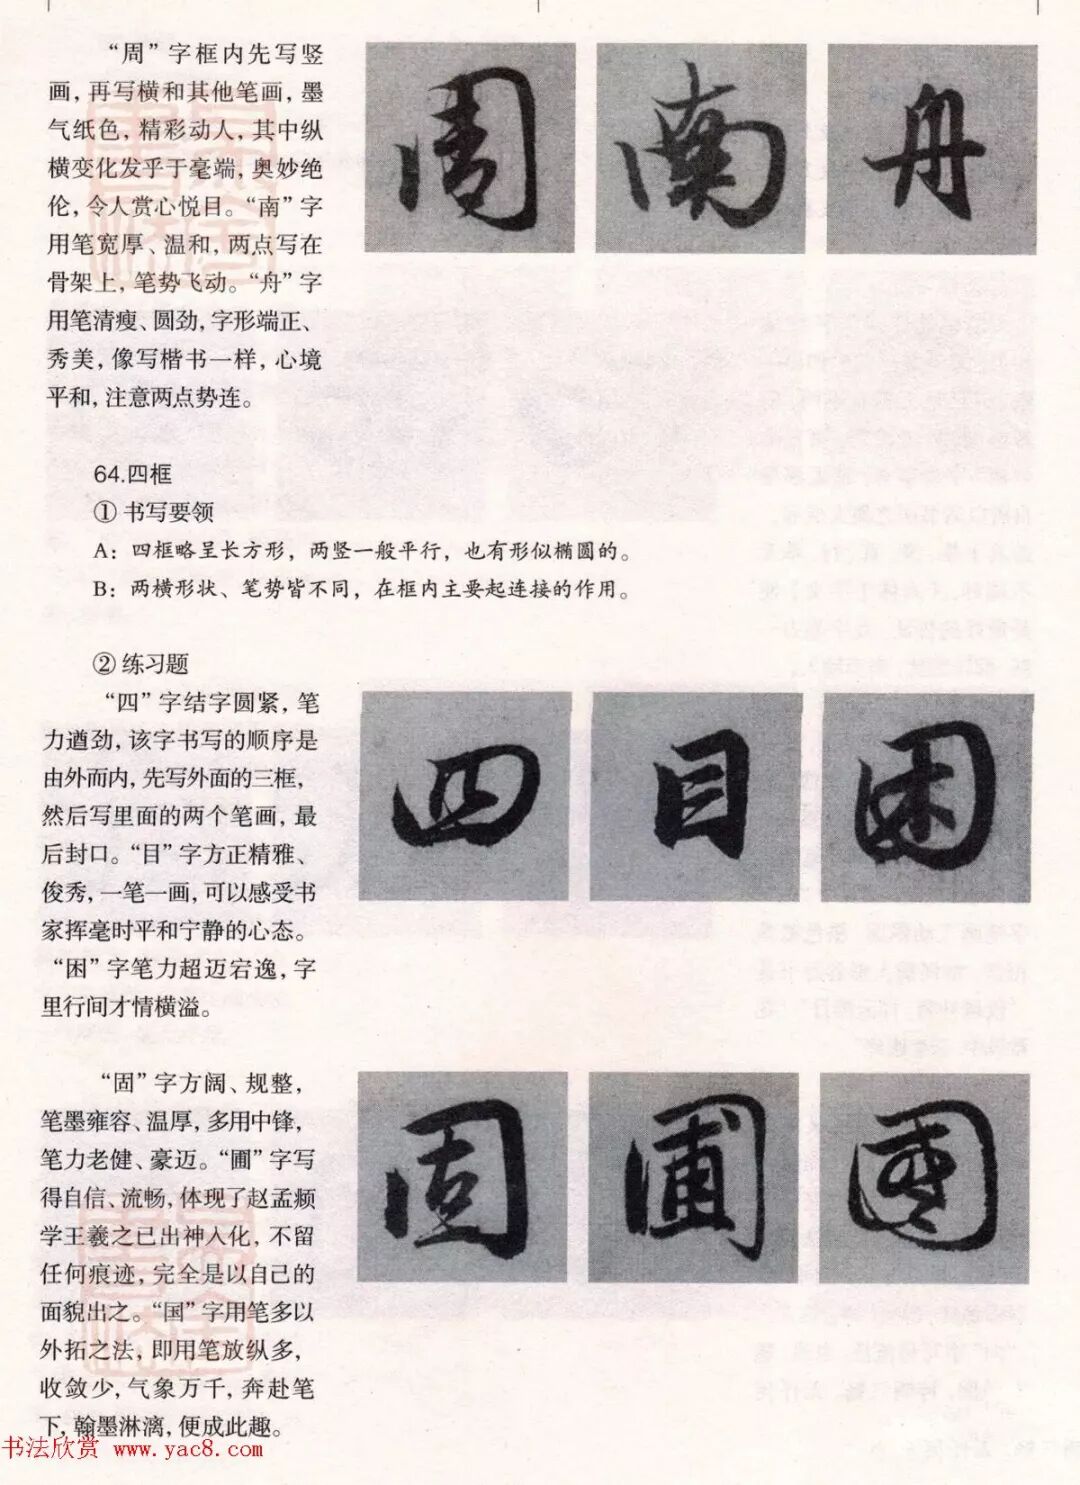 “周”字框内先写竖
画，再写横和其他笔画，墨
气纸色，精彩动人，其中纵
横变化发乎于毫端，奥妙绝
伦，令人赏心悦目。“南”字
用笔宽厚、温和，两点写在
骨架上，笔势飞动。“舟”字
用笔清瘦、圆劲，字形端正、
秀美，像写楷书一样，心境
平和，注意两点势连。
周 南 舟
64.四框
① 书写要领
A：四框略呈长方形，两竖一般平行，也有形似椭圆的。
B：两横形状、笔势皆不同，在框内主要起连接的作用。
② 练习题
“四”字结字圆紧，笔
力遒劲，该字书写的顺序是
由外而内，先写外面的三框，
然后写里面的两个笔画，最
后封口。“目”字方正精雅、
俊秀，一笔一画，可以感受书
家挥毫时平和宁静的心态。
“困”字笔力超迈宕逸，字
里行间才情横溢。
四 目 困
“固”字方阔、规整，
笔墨雍容、温厚，多用中锋，
笔力老健、豪迈。“圃”字写
得自信、流畅，体现了赵孟頫
学王羲之已出神入化，不留
任何痕迹，完全是以自己的
面貌出之。“国”字用笔多以
外拓之法，即用笔放纵多，
收敛少，气象万千，奔赴笔
下，翰墨淋漓，便成此趣。
固 圃 國
书法欣赏 www.yac8.com